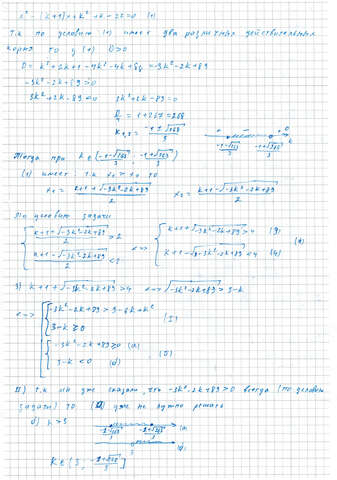 x² - (k+1)x + k² + k - 22 = 0 (1)
Т.к по условию (1) имеет два различных действительных
корня то у (1) D>0
D = k² + 2k + 1 - 4k² - 4k + 88 = -3k² - 2k + 89
-3k² - 2k + 89 > 0
3k² + 2k - 89 < 0 3k² + 2k - 89 = 0
D/4 = 1 + 267 = 268
k₁,₂ = (-1 ± √268)/3
Тогда при k ∈ ((-1-√268)/3 ; (-1+√268)/3)
(1) имеет
x₁ = (k+1+√(-3k²-2k+89))/2 x₂ = (k+1-√(-3k²-2k+89))/2
По условию задачи
{ (k+1+√(-3k²-2k+89))/2 > 2 <=> { k+1+√(-3k²-2k+89) > 4 (3)
{ (k+1-√(-3k²-2k+89))/2 < 2 { k+1-√(-3k²-2k+89) < 4 (4)
3) k+1+√(-3k²-2k+89) > 4 <=> √(-3k²-2k+89) > 3-k
<=> { -3k²-2k+89 > 9-6k+k²
{ 3-k ≥ 0 (I)
{ -3k²-2k+89 ≥ 0 (а)
{ 3-k < 0 (б) (II)
II) т.к мы уже сказали, что -3k²-2k+89>0 всегда (по условию
задачи) то (а) уже не нужно решать
б) k>3
k ∈ (3; (-1+√268)/3]